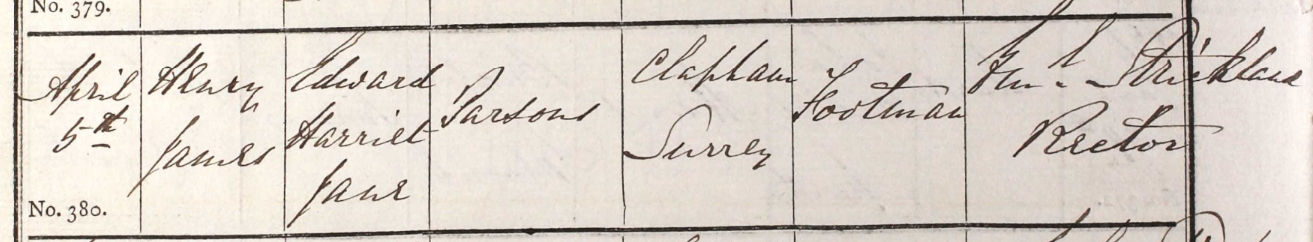 No. 379.
April
5th
Henry
James
Edward
Harriet
Jane
Parsons
Clapham
Surrey
Footman
Strickland
Rector
No. 380.